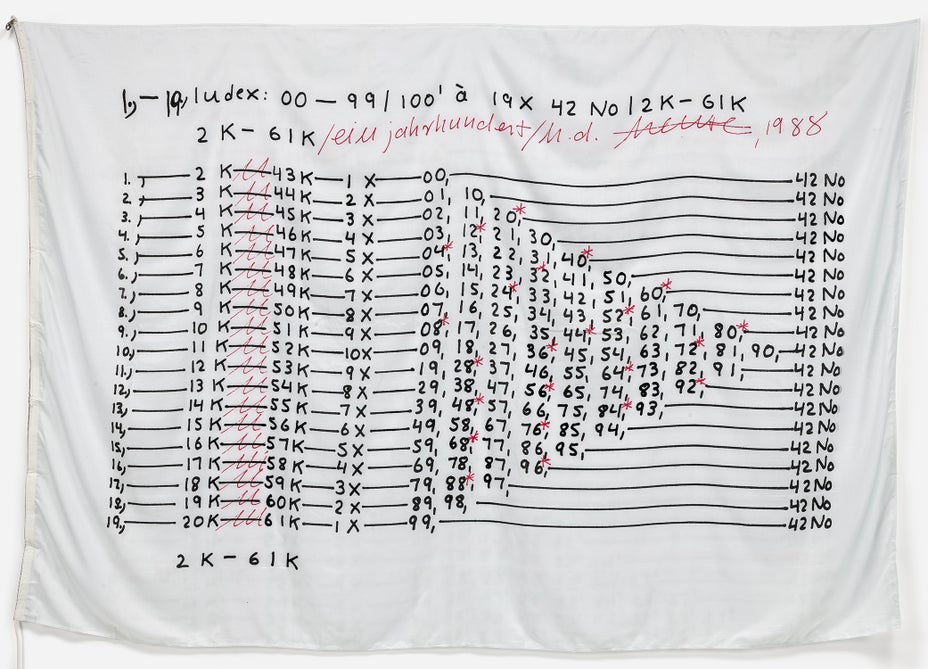 1., – 19., Index: 00 – 99 / 100' à 19 x 42 No / 2K – 61K
2 K – 61K / ein jahrhundert / H.d. heute, 1988
1., — 2 K — 43 K — 1 x — 00, — 42 No
2., — 3 K — 44 K — 2 x — 01, 10, — 42 No
3., — 4 K — 45 K — 3 x — 02, 11, 20,* — 42 No
4., — 5 K — 46 K — 4 x — 03, 12,* 21, 30, — 42 No
5., — 6 K — 47 K — 5 x — 04,* 13, 22, 31, 40,* — 42 No
6., — 7 K — 48 K — 6 x — 05, 14, 23, 32,* 41, 50, — 42 No
7., — 8 K — 49 K — 7 x — 06, 15, 24,* 33, 42, 51, 60,* — 42 No
8., — 9 K — 50 K — 8 x — 07, 16, 25, 34, 43, 52,* 61, 70, — 42 No
9., — 10 K — 51 K — 9 x — 08,* 17, 26, 35, 44,* 53, 62, 71, 80,* — 42 No
10., — 11 K — 52 K — 10 x — 09, 18, 27, 36,* 45, 54, 63, 72,* 81, 90, — 42 No
11., — 12 K — 53 K — 9 x — 19, 28,* 37, 46, 55, 64,* 73, 82, 91, — 42 No
12., — 13 K — 54 K — 8 x — 29, 38, 47, 56,* 65, 74, 83, 92,* — 42 No
13., — 14 K — 55 K — 7 x — 39, 48,* 57, 66, 75, 84,* 93, — 42 No
14., — 15 K — 56 K — 6 x — 49, 58, 67, 76,* 85, 94, — 42 No
15., — 16 K — 57 K — 5 x — 59, 68,* 77, 86, 95, — 42 No
16., — 17 K — 58 K — 4 x — 69, 78, 87, 96,* — 42 No
17., — 18 K — 59 K — 3 x — 79, 88,* 97, — 42 No
18., — 19 K — 60 K — 2 x — 89, 98, — 42 No
19., — 20 K — 61 K — 1 x — 99, — 42 No
2 K – 61 K